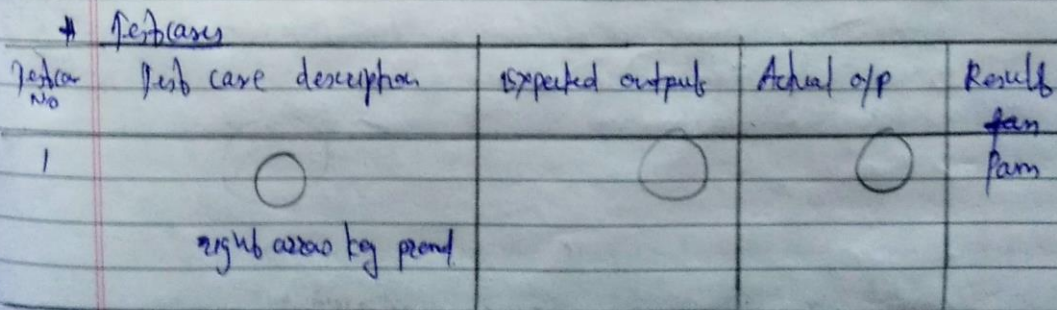 * Testcases
Testcase No Test case description Expected outputs Actual o/p Result
1 Pass
right arrow key pressed